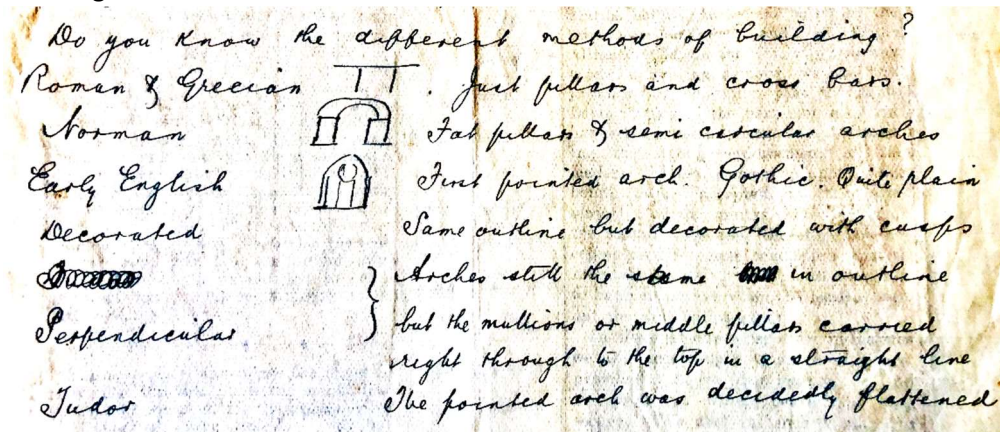 Do you know the different methods of building?
Roman & Grecian . Just pillars and cross bars.
Norman Fat pillars & semi circular arches
Early English First pointed arch. Gothic. Quite plain
Decorated Same outline but decorated with cusps
Arches still the same in outline
Perpendicular but the mullions or middle pillars carried
right through to the top in a straight line
Tudor The pointed arch was decidedly flattened